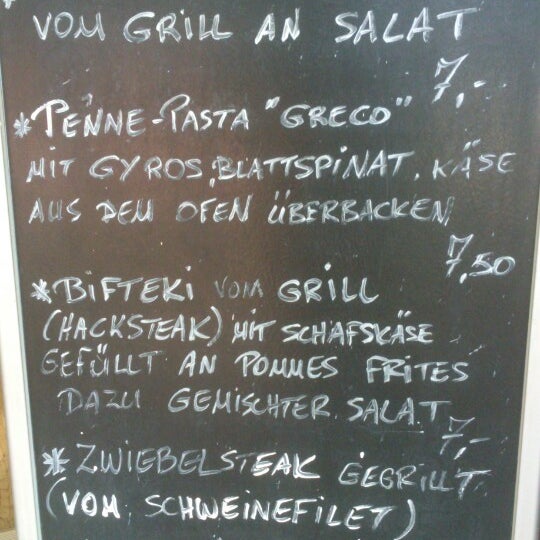 VOM GRILL AN SALAT
7,-
* PENNE-PASTA "GRECO"
MIT GYROS, BLATTSPINAT, KÄSE
AUS DEM OFEN ÜBERBACKEN
7,50
* BIFTEKI VOM GRILL
(HACKSTEAK) MIT SCHAFSKÄSE
GEFÜLLT AN POMMES FRITES
DAZU GEMISCHTER SALAT
7,-
* ZWIEBELSTEAK GEGRILLT
(VOM SCHWEINEFILET)